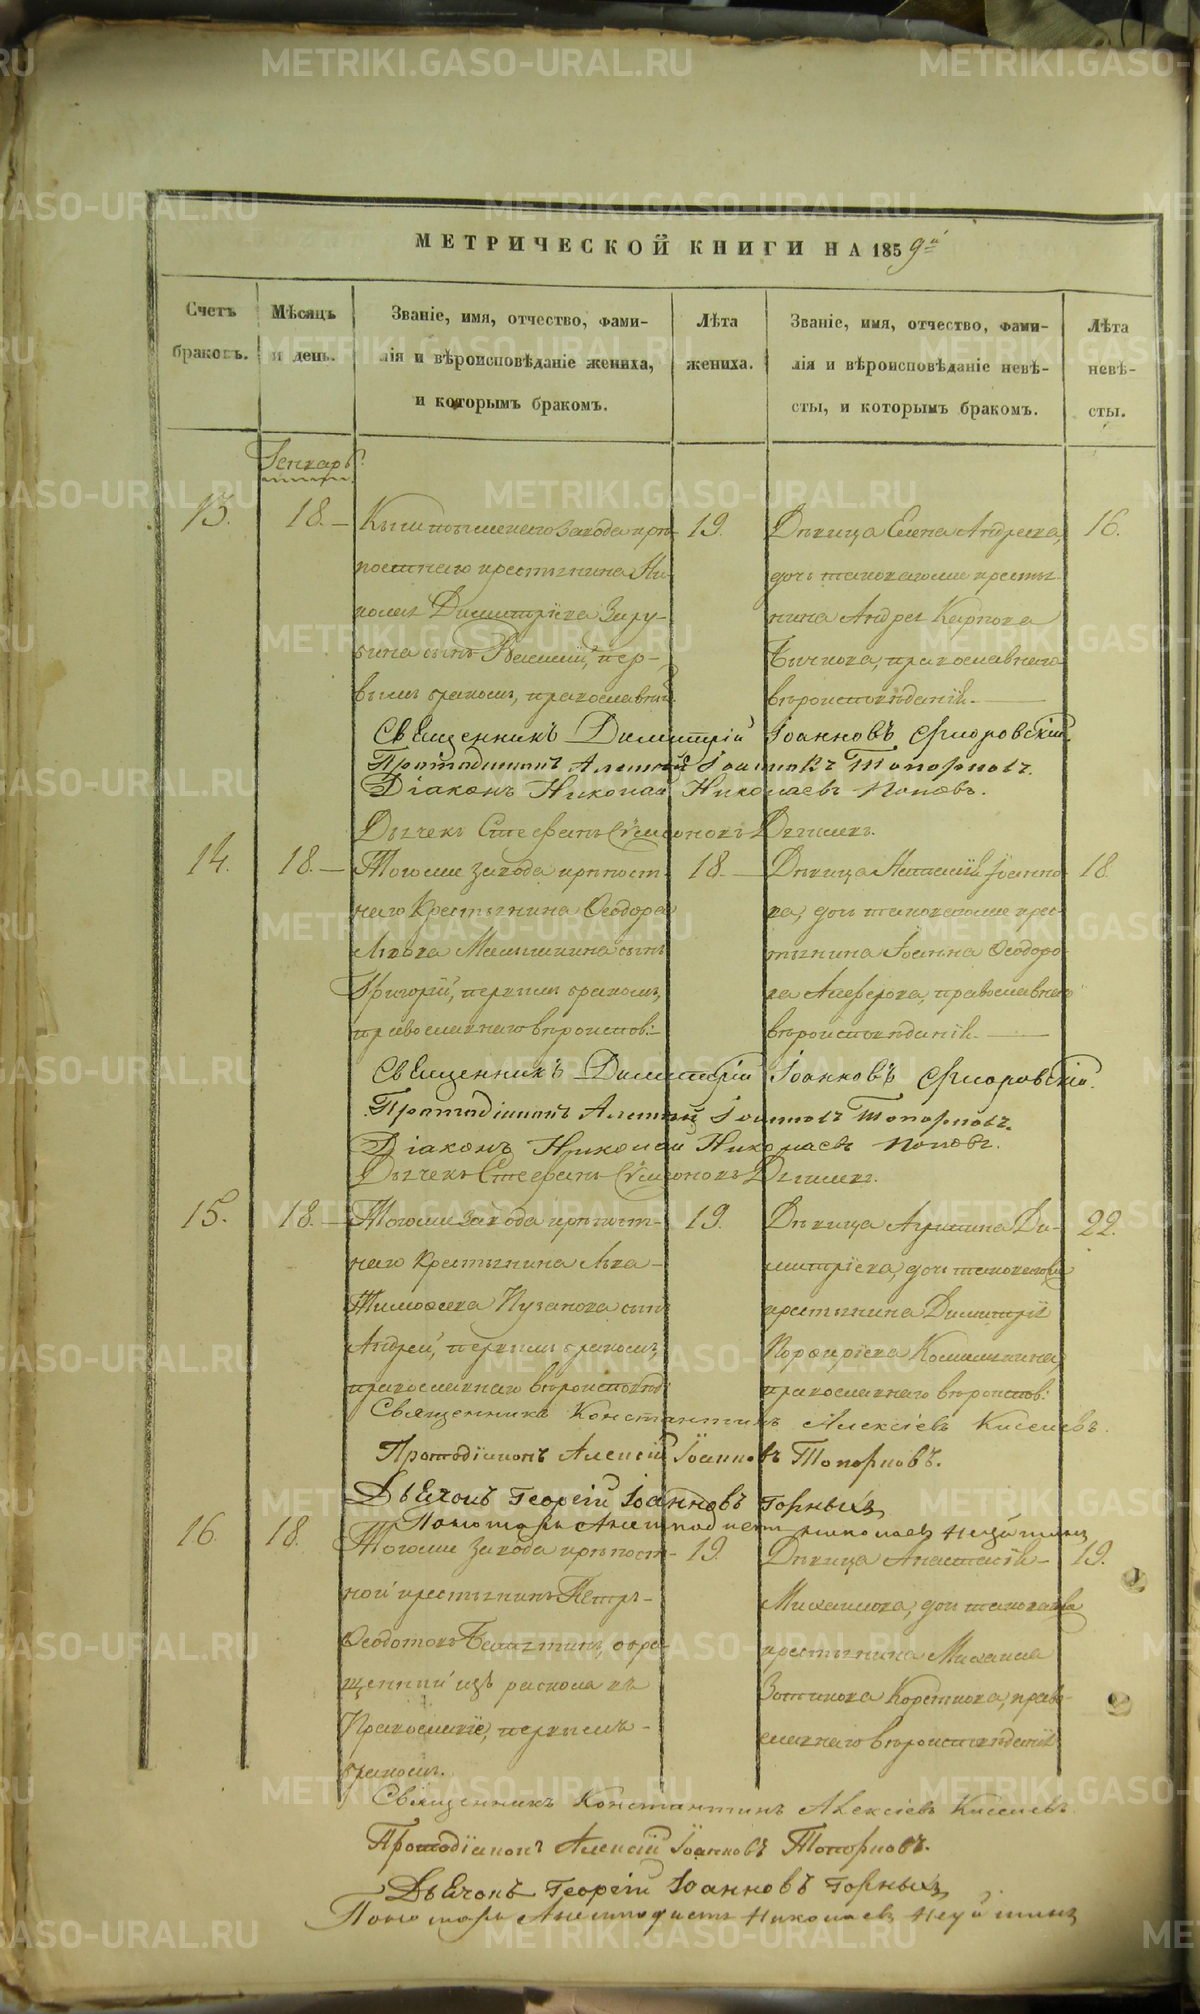 МЕТРИЧЕСКОЙ КНИГИ НА 1859й
Счетъ
браковъ.
Мѣсяцъ
и день.
Званіе, имя, отчество, фами-
лія и вѣроисповѣданіе жениха,
и которымъ бракомъ.
Лѣта
жениха.
Званіе, имя, отчество, фами-
лія и вѣроисповѣданіе невѣ-
сты, и которымъ бракомъ.
Лѣта
невѣ-
сты.
Генварь
13.
18.
Кыштымскаго завода крѣ-
постнаго крестьянина Ни-
колая Димитріева Зару-
бина сынъ Василій, пер-
вымъ бракомъ, православн.
19.
Дѣвица Елена Андреева,
дочь таковагоже крестья-
нина Андрея Карпова
Бычкова, православнаго
вѣроисповѣданія.
16.
Священникъ Димитрій Іоанновъ Флоровскій
Протодіаконъ Алексій Іоанновъ Топорковъ.
Діаконъ Николай Николаевъ Поповъ.
Дьячекъ Стефанъ Сѵмеоновъ
14.
18.
Тогоже завода крѣпост-
наго Крестьянина Ѳеодора
Львова сынъ
Григорій, первымъ бракомъ,
православнаго вѣроиспов:
18.
Дѣвица Наталія Іоанно-
ва, дочь таковагоже крес-
тьянина Іоанна Ѳеодоро-
ва Алферова, православнаго
вѣроисповѣданія.
18
Священникъ Димитрій Іоанновъ Флоровскій.
Протодіаконъ Алексій Іоанновъ Топорковъ.
Діаконъ Николай Николаевъ Поповъ.
Дьячекъ Стефанъ Сѵмеоновъ
15.
18.
Тогоже завода крѣпост-
наго Крестьянина Льва
Тимоѳеева Пузанова сынъ
Андрей, первымъ бракомъ,
православнаго вѣроисповѣд:
19.
Дѣвица Агрипина Ди-
митріева, дочь таковагоже
крестьянина Димитрія
Порфиріева
православнаго вѣроиспов:
22.
Священникъ Константинъ Алексіевъ Киселевъ.
Протодіаконъ Алексій Іоанновъ Топорковъ.
Дьячокъ Георгій Іоанновъ Горныхъ
Пономарь Николаевъ
16.
18.
Тогоже завода крѣпост-
ной крестьянинъ Петръ
Ѳеодотовъ обра-
щенный изъ раскола къ
Православію, первымъ
бракомъ.
19.
Дѣвица Анастасія
Михаилова, дочь таковаго
крестьянина Михаила
Зотикова право-
славнаго вѣроисповѣданія
19.
Священникъ Константинъ Алексіевъ Киселевъ
Протодіаконъ Алексій Іоанновъ Топорковъ.
Дьячокъ Георгій Іоанновъ Горныхъ
Пономарь Николаевъ
METRIKI.GASO-URAL.RU